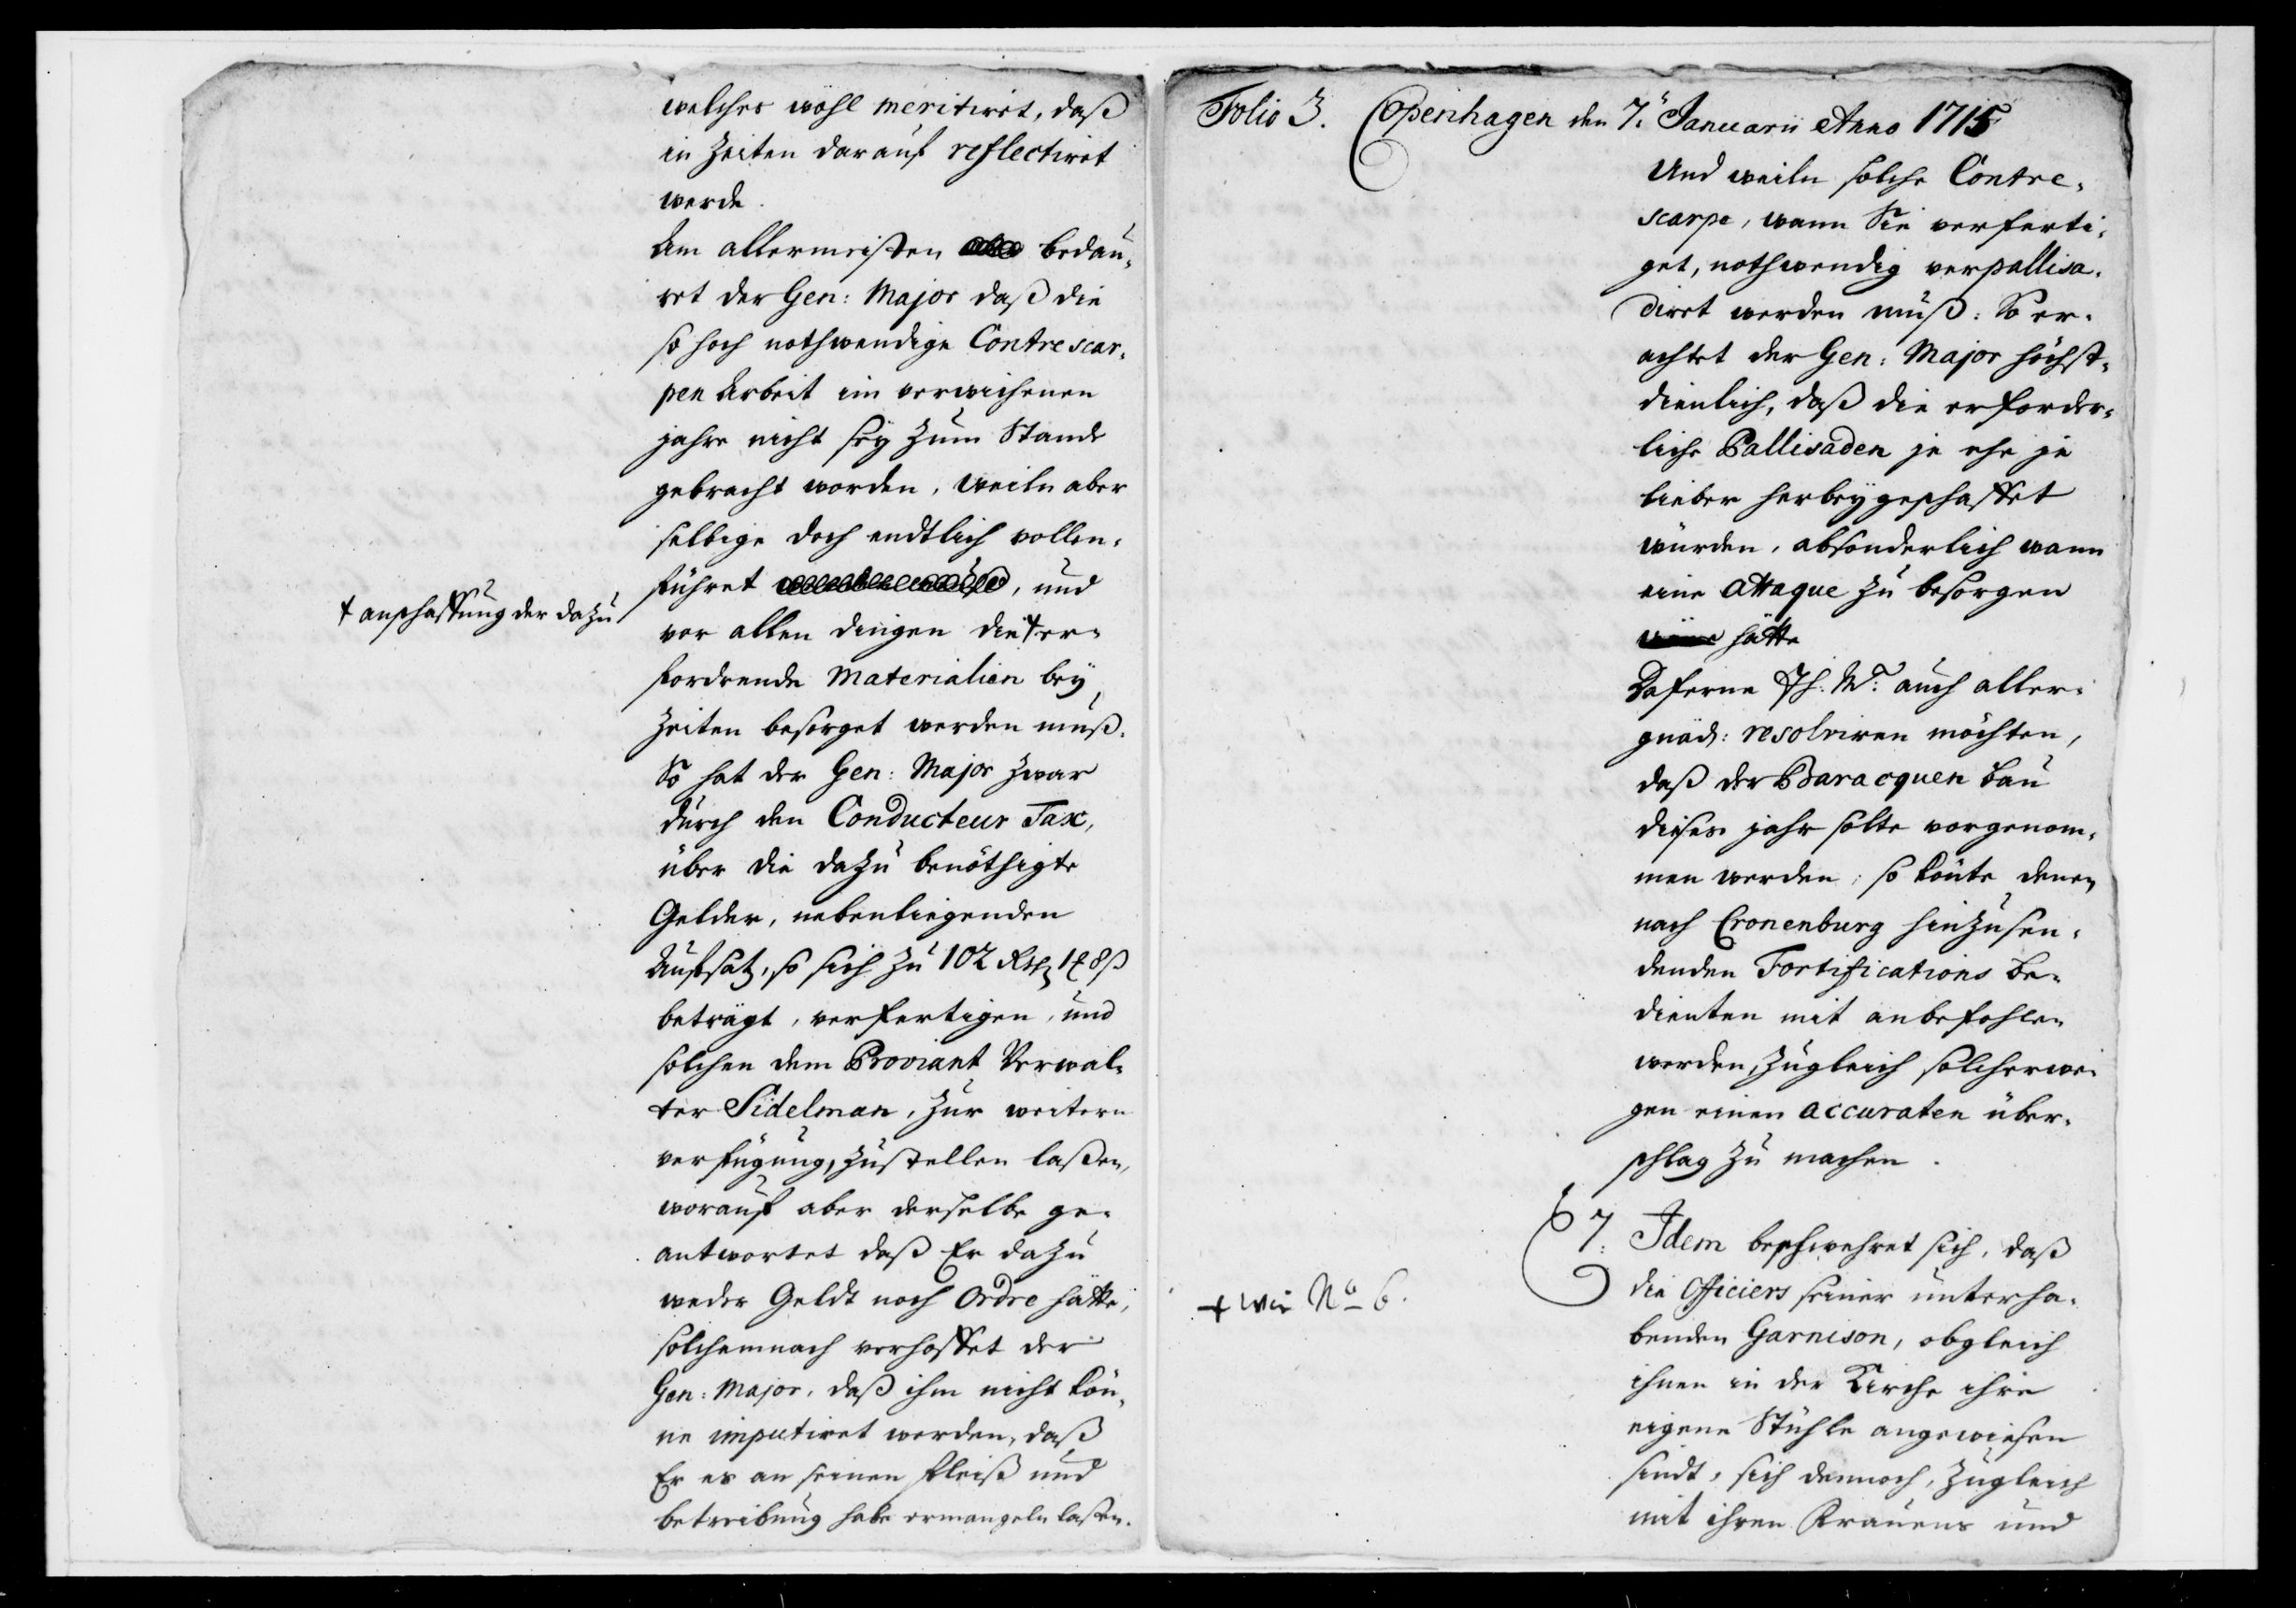 welches wohl meritiret, daß
in Zeiten darauf reflectiret
werde.
Am allermeisten bedau¬
ret der Gen: Major daß die
so hoch nothwendige Contrescar¬
pen Arbeit im verwichenen
jahre nicht seÿ zum Stande
gebracht worden, weiln aber
selbige doch endtlich vollen¬
führet, und
† anschaffung der dazu
vor allen dingen die † er¬
fordrende Materialien beÿ
Zeiten besorget werden muß.
So hat der Gen: Major zwar
durch den Conducteur Tax,
über die dazu benöthigte
Gelder, nebenliegenden
Aufsatz, so sich zu 102 Rth 8 ß
beträgt, verfertigen, und
solchen dem Proviant Verwal¬
ter Sidelman, zur weitern
verfügung, zustellen laßen,
worauf aber derselbe ge¬
antwortet daß Er dazu
weder Geldt noch Ordre hätte,
solchemnach verhoffet der
Gen: Major, daß ihm nicht kön¬
ne imputiret werden, daß
Er es an seinen fleiß und
betreibung habe ermangeln laßen.
Folio 3. Copenhagen den 7. Januarii Anno 1715
Und weiln solche Contre¬
scarpe, wann Sie verferti¬
get, nothwendig verpallisa¬
diret werden muß: So er¬
achtet der Gen: Major höchst¬
dienlich, daß die erforder¬
liche Pallisaden je ehe je
lieber herbeÿgeschaffet
würden, absonderlich wann
eine attaque zu besorgen
hätte
Daferne Ih. M: auch aller¬
gnäd: resolviren möchten,
daß der Baracquen bau
dieses jahr solte vorgenom¬
men werden; so könte denen
nach Cronenburg hinzusen¬
denden Fortifications be¬
dienten mit anbefohlen
werden, zugleich solcherwe¬
gen einen accuraten über¬
schlag zu machen.
7. Idem beschwehret sich, daß
† wie No 6.
die Officiers seiner unterha¬
benden Garnison, obgleich
ihnen in der Kirche ihre
eigene Stühle angewiesen
sindt, sich dennoch, zugleich
mit ihren Frauens und